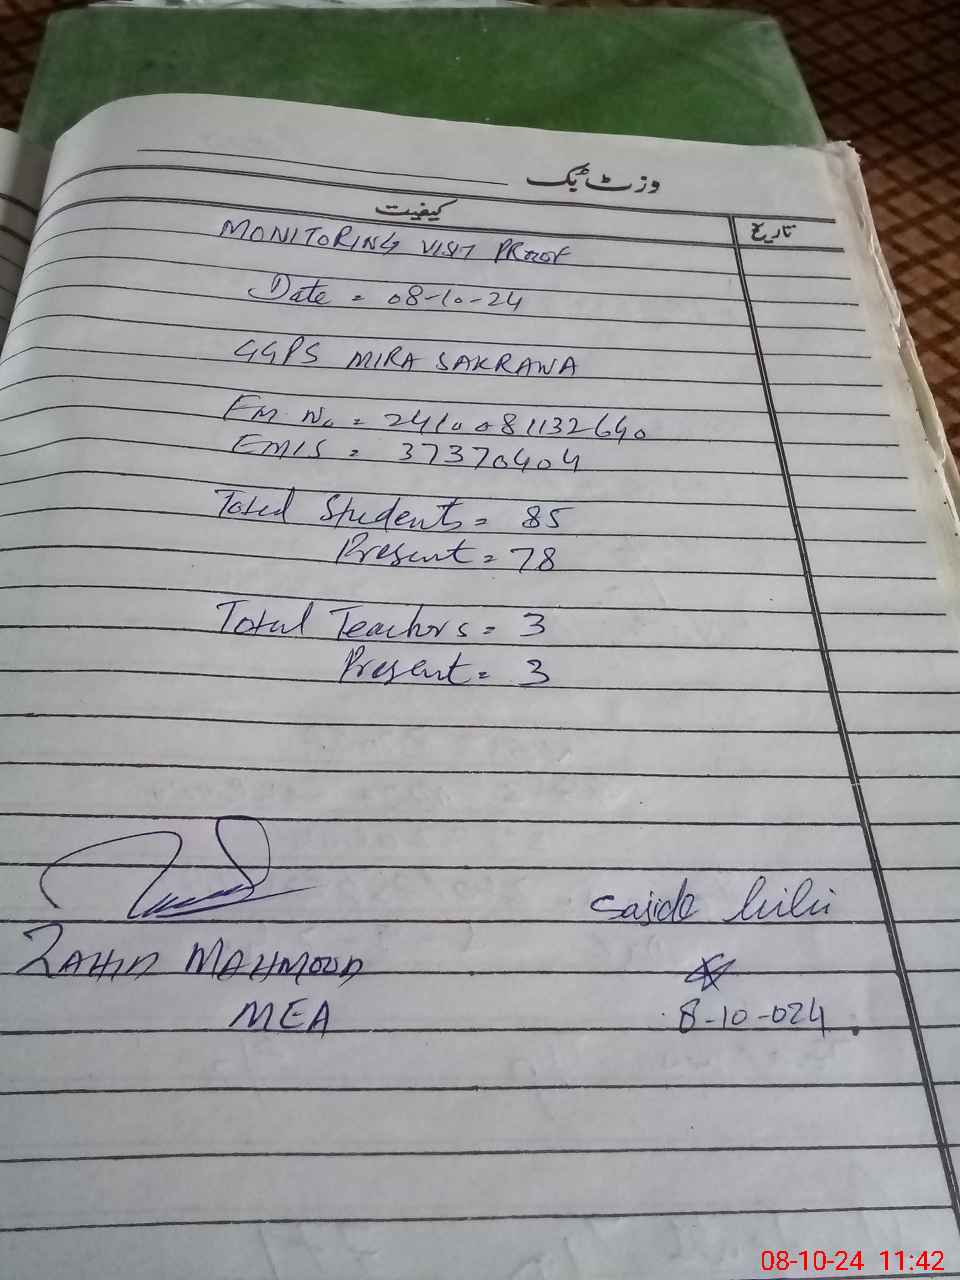 وزٹ بک
کیفیت
تاریخ
MONITORING VISIT PROOF
Date = 08-10-24
GGPS MIRA SAKRANA
FM No = 2410081132640
EMIS = 37370404
Total Students = 85
Present = 78
Total Teachors = 3
Present = 3
Sajida bibi
ZAHID MAHMOOD
MEA
8-10-024
08-10-24 11:42